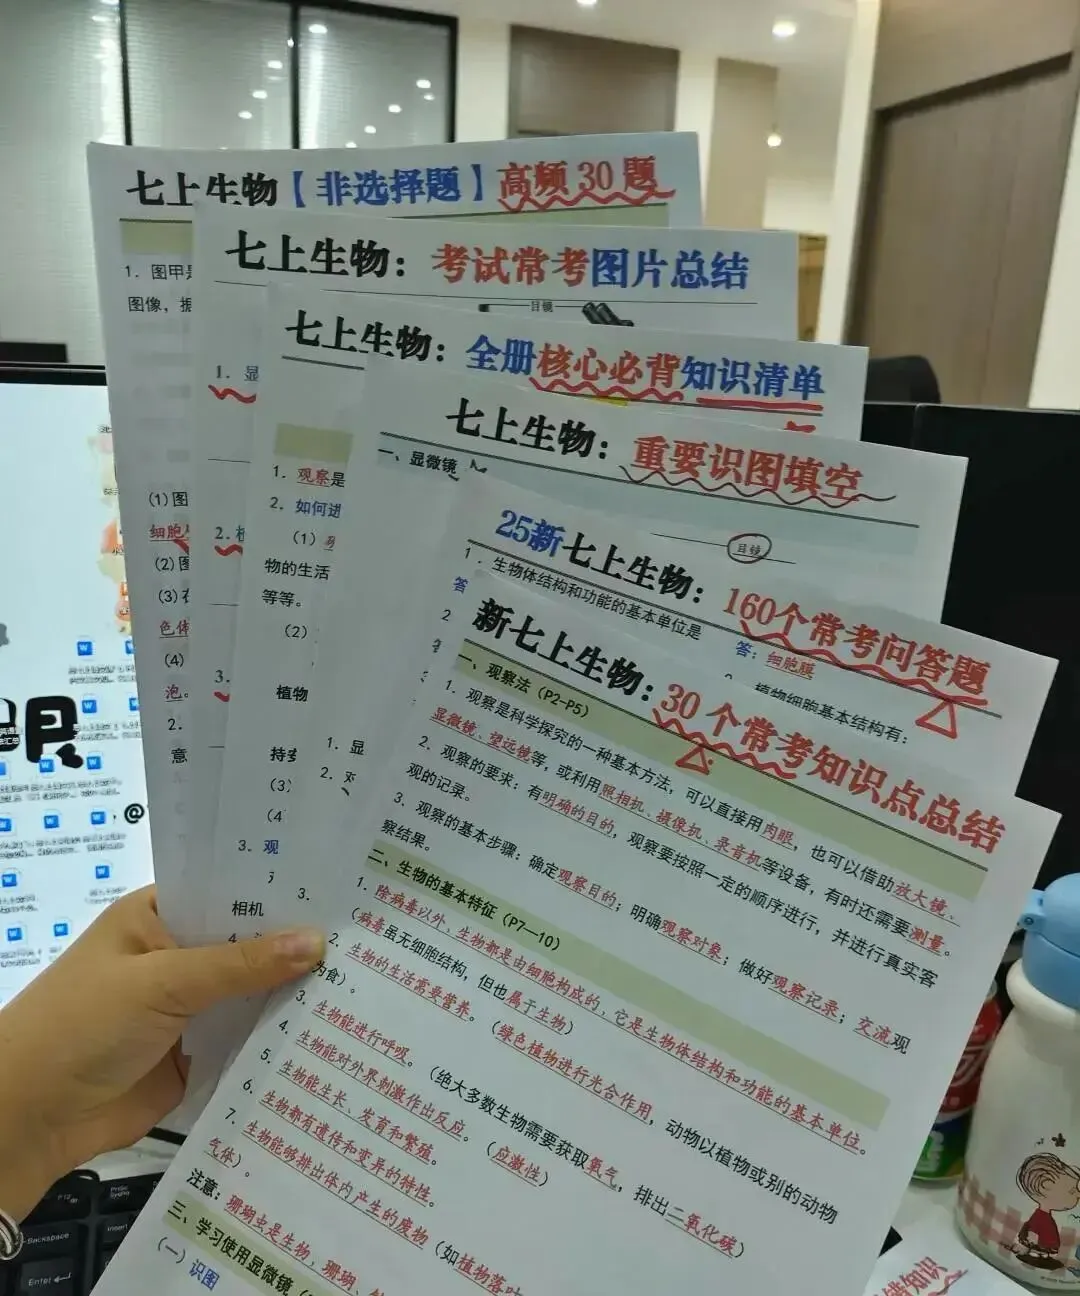 七上生物【非选择题】高频30题
1. 图甲是
图像，据
(1)图
细胞
(2)图
(3)在
色体
(4)
泡。
2.
意
七上生物：考试常考图片总结
目镜
1. 显
2.
3.
七上生物：全册核心必背知识清单
1. 观察是
2. 如何进
（1）
物的生活
等等。
（2）
植物
(3)
(4
3. 观
相机
4.
七上生物：重要识图填空
一、显微镜
目镜
1. 显
2.
3.
25新七上生物：160个常考问答题
1. 生物体结构和功能的基本单位是
答：细胞膜
答
2
植物细胞基本结构有：
新七上生物：30个常考知识点总结
一、观察法（P2-P5）
1. 观察是科学探究的一种基本方法，可以直接用肉眼，也可以借助放大镜、
显微镜、望远镜等，或利用照相机、摄像机、录音机等设备，有时还需要测量。
2. 观察的要求：有明确的目的，观察要按照一定的顺序进行，并进行真实客
观的记录。
3. 观察的基本步骤：确定观察目的；明确观察对象；做好观察记录；交流观
察结果。
二、生物的基本特征（P7—10）
1. 除病毒以外，生物都是由细胞构成的，它是生物体结构和功能的基本单位。
（病毒虽无细胞结构，但也属于生物）
2. 生物的生活需要营养。（绿色植物进行光合作用，动物以植物或别的动物
为食）。
3. 生物能进行呼吸。（绝大多数生物需要获取氧气，排出二氧化碳）
4. 生物能对外界刺激作出反应。（应激性）
5. 生物能生长、发育和繁殖。
6. 生物都有遗传和变异的特性。
7. 生物能够排出体内产生的废物（如植物落叶
气体）。
注意：珊瑚虫是生物，珊瑚、
三、学习使用显微镜
（一）识图
Backspace
Enter
Insert